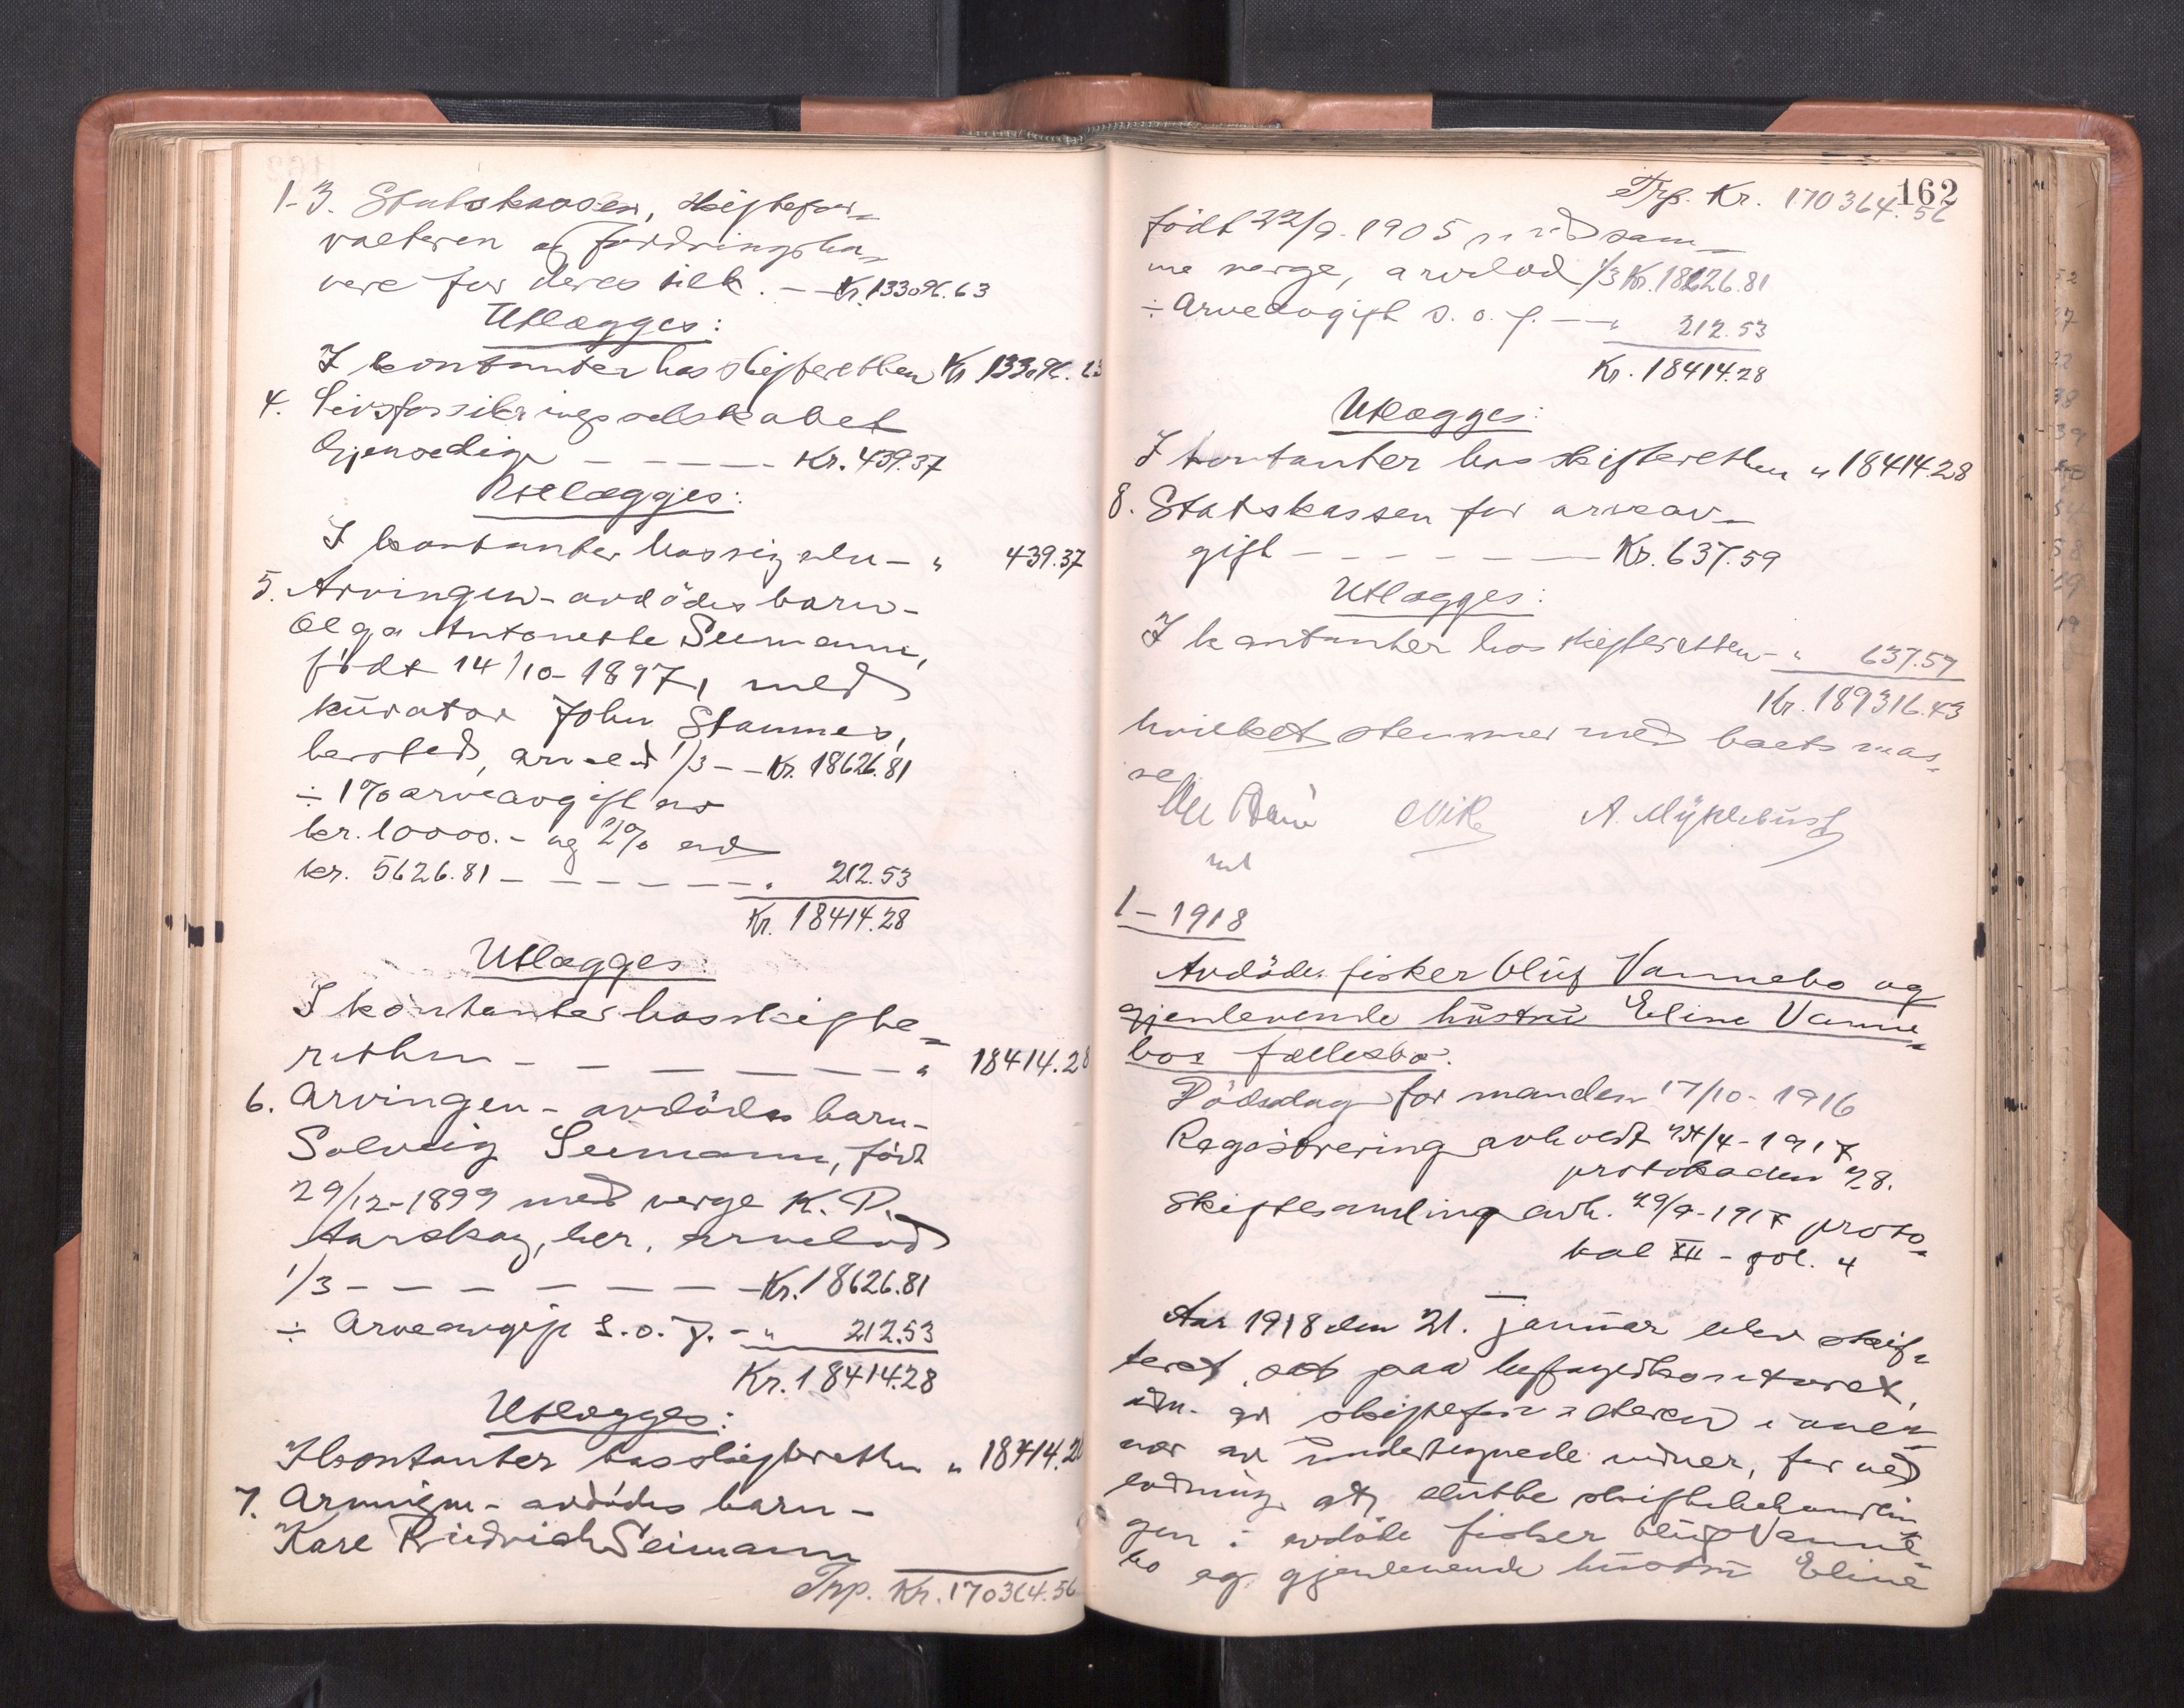 1-3. Statskassen, skiftefor-
valteren og fordringsha-
vere for deres tilk. — Kr. 133096.63
Utlægges:
I kontanter hos skifteretten Kr. 133096.63
4. Livsforsikringsselskabet
Gjensedige — — — — — Kr. 439.37
Utlægges:
I kontanter hos sig selv — " 439.37
5. Arvingen - avdødes barn -
Olga Antonette Seemann,
født 14/10-1897, med
kurator John Stamnes,
hersteds, arvelod 1/3 — — Kr. 18626.81
÷ 1% arveavgift av
kr. 10000.- og 2% av
kr. 5626.81 — — — — — — " 212.53
Kr. 18414.28
Utlægges:
I kontanter hos skifte-
retten — — — — — — — " 18414.28
6. Arvingen - avdødes barn -
Solveig Seemann, født
29/12-1899 med verge K. P.
Aarskog, her, arvelod
1/3 — — — — — — — Kr. 18626.81
÷ Arveavgift s.o.f. — " 212.53
Kr. 18414.28
Utlægges:
I kontanter hos skifteretten " 18414.28
7. Arvingen - avdødes barn -
Karl Fridrich Seimann
Trp. Kr. 170364.56
162
Trp. Kr. 170364.56
født 22/9-1905 med sam-
me verge, arvelod 1/3 Kr. 18626.81
÷ Arveavgift s.o.f. — " 212.53
Kr. 18414.28
Utlægges:
I kontanter hos skifteretten " 18414.28
8. Statskassen for arveav-
gift — — — — — — Kr. 637.59
Utlægges:
I kontanter hos skifteretten — " 637.59
Kr. 189316.43
hvilket stemmer med boets mas-
se
A. Myklebust
1-1918
Avdøde fisker Oluf Vannebo og
gjenlevende hustru Eline Vanne-
bos fællesbo.
Dødsdag for manden 17/10-1916
Registrering avholdt 24/4-1917
protokollen 28.
Skiftesamling avh. 29/9-1917 proto-
kol XII - fol. 4
Aar 1918 den 21. januar blev skif-
teret sat paa lensfogedkontoret,
adm. av skifteforvalteren i nær-
vær av undertegnede vidner, for ved
lodning at slutte skiftebehandlin-
gen i avdøde fisker Oluf Vanne-
bo og gjenlevende hustru Eline